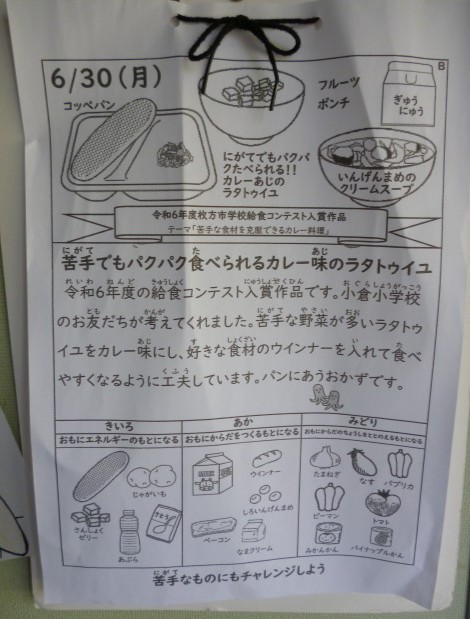 6/30(月)
B
コッペパン
フルーツ
ポンチ
ぎゅう
にゅう
にがてでもパクパ
クたべられる!!
カレーあじの
ラタトゥイユ
いんげんまめの
クリームスープ
令和6年度枚方市学校給食コンテスト入賞作品
テーマ「苦手な食材を克服できるカレー料理」
苦手でもパクパク食べられるカレー味のラタトゥイユ
令和6年度の給食コンテスト入賞作品です。小倉小学校
のお友だちが考えてくれました。苦手な野菜が多いラタトゥ
イユをカレー味にし、好きな食材のウインナーを入れて食べ
やすくなるように工夫しています。パンにあうおかずです。
きいろ
あか
みどり
おもにエネルギーのもとになる
おもにからだをつくるもとになる
おもにからだのちょうしをととのえるもとになる
じゃがいも
さんしょく
ゼリー
あぶら
さとう
ウインナー
しろいんげんまめ
ベーコン
なまクリーム
たまねぎ
なす
パプリカ
ピーマン
トマト
みかんかん
パイナップルかん
苦手なものにもチャレンジしよう